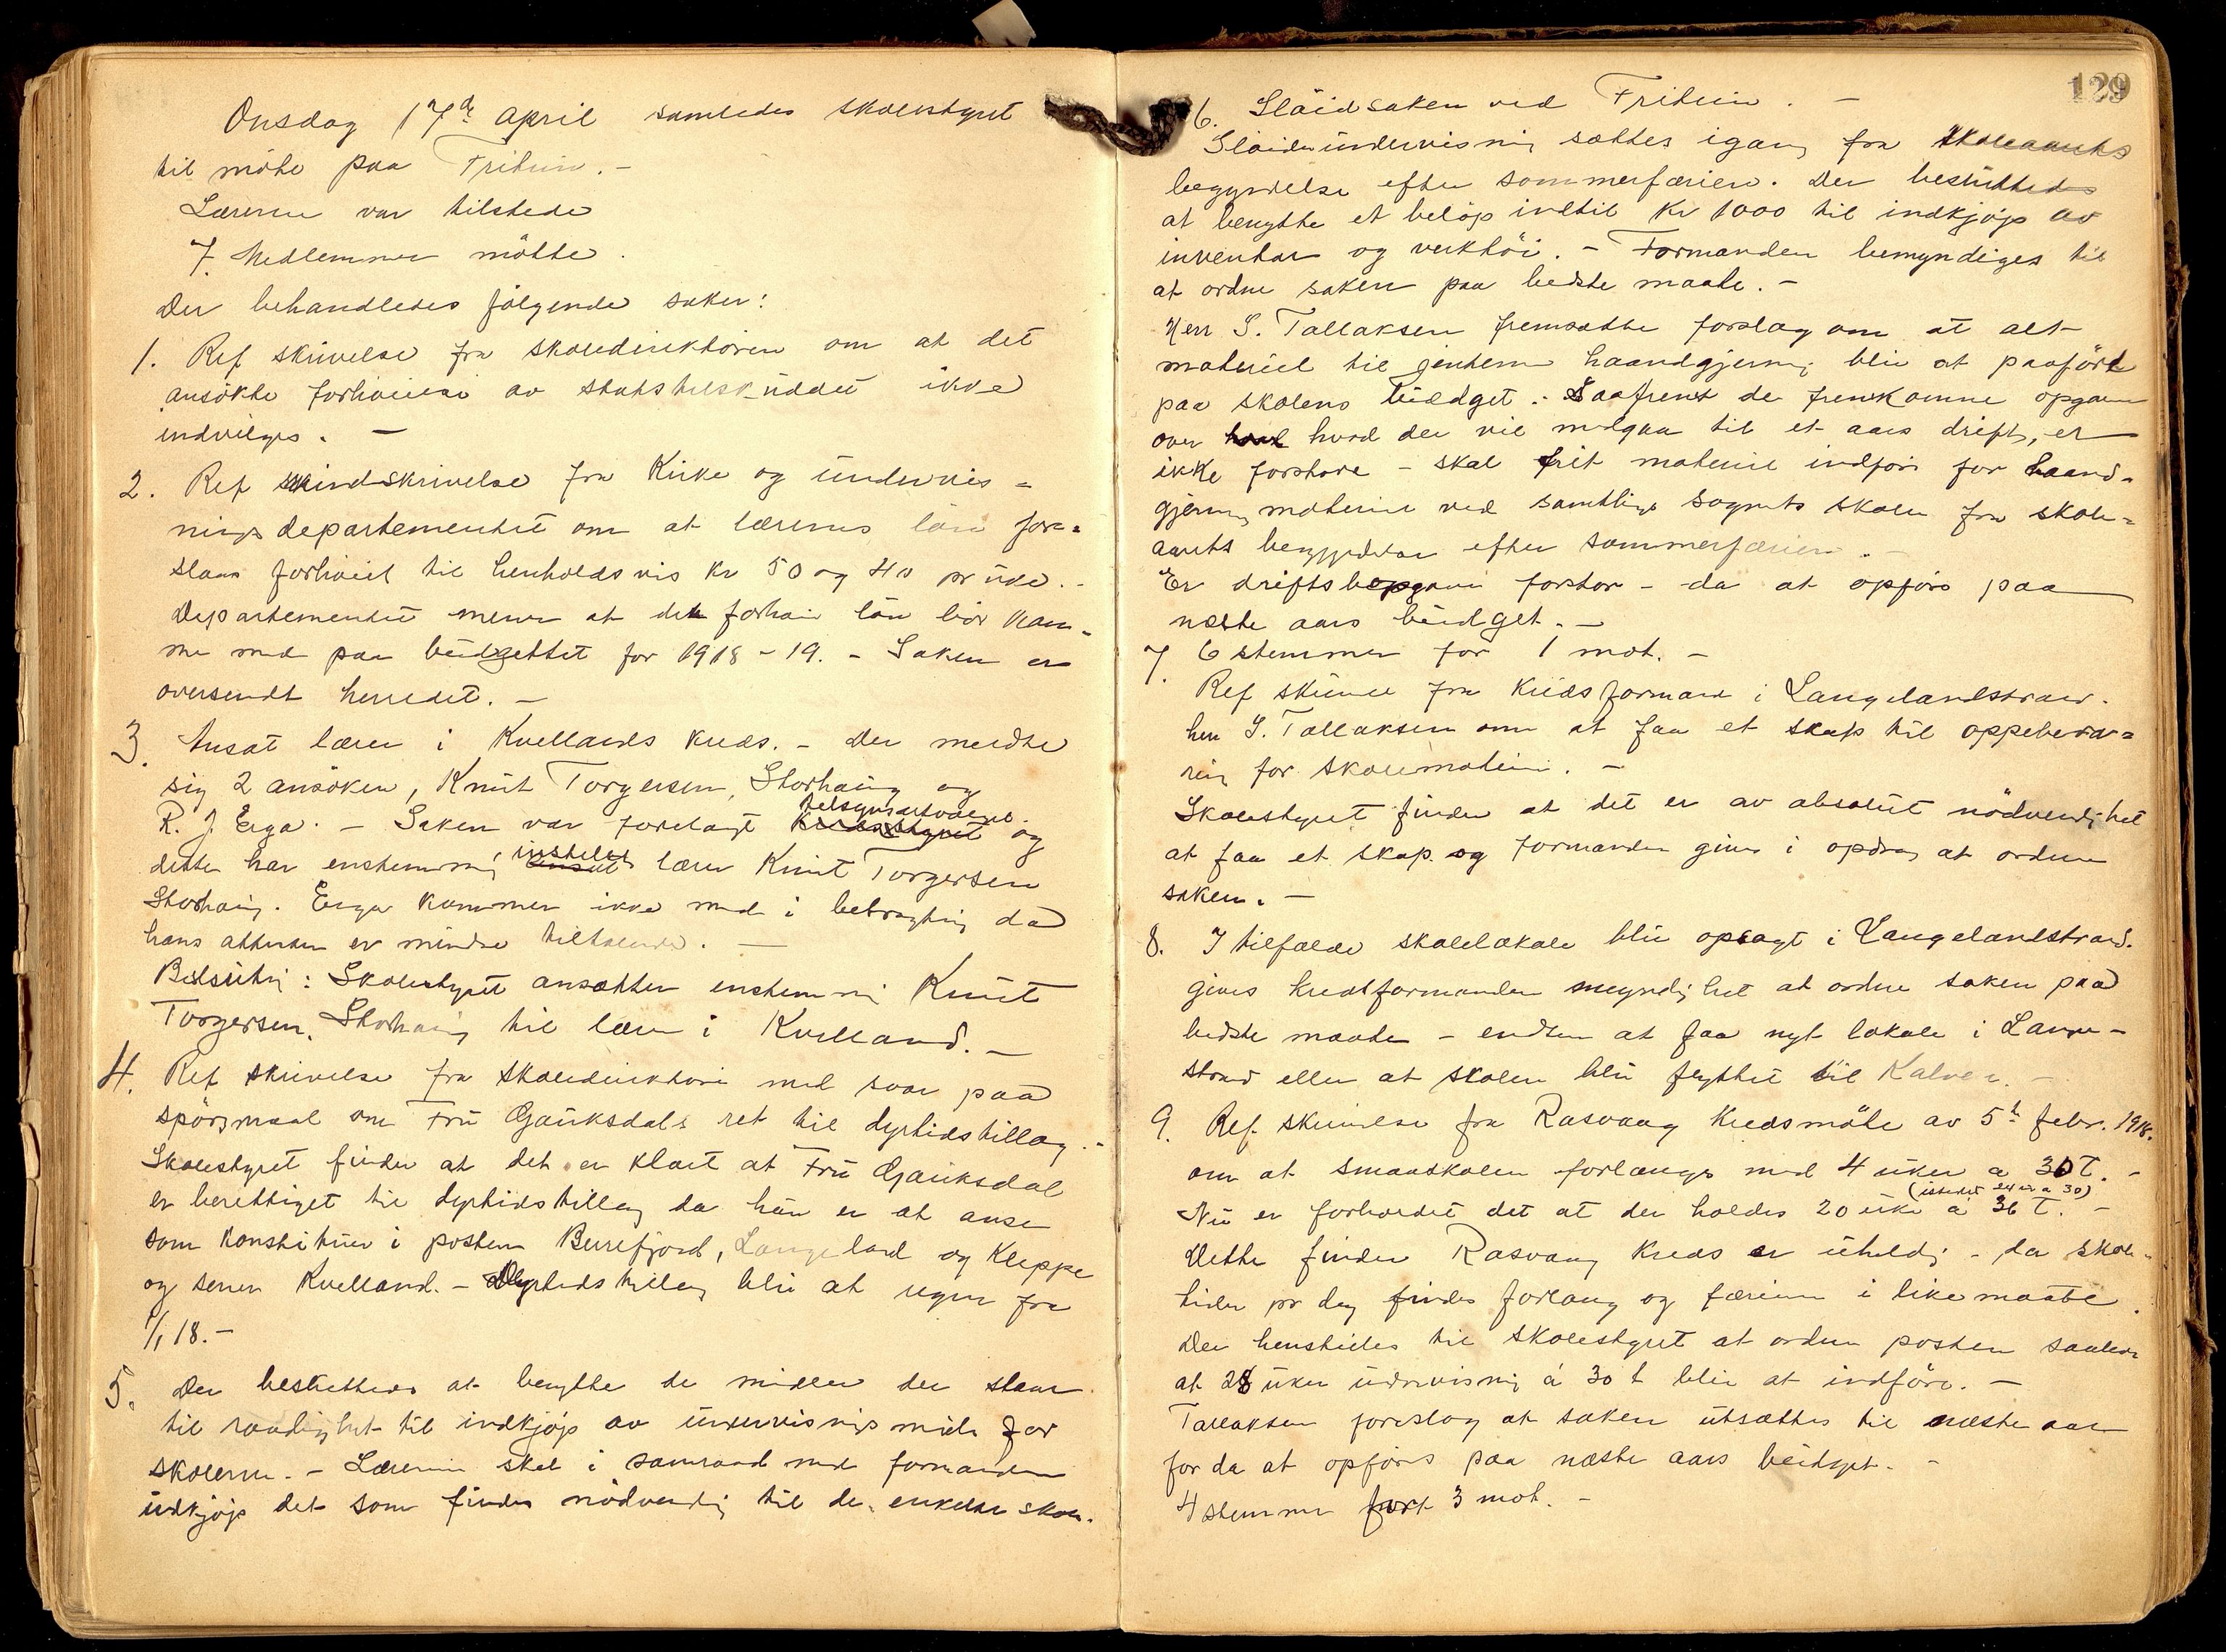 Onsdag 17de april samledes skolestyret
til möte paa Friheim. -
Lærerne var tilstede
7. Medlemmer mötte.
Der behandledes fölgende saker:
1. Ref skrivelse fra skoledirektören om at det
ansökte forhöielse av statstilskuddet ikke
indvilges. -
2. Ref skrivelse fra Kirke og undervis=
nings departementet om at lærernes lön fore=
slaas forhöiet til henholdsvis kr 50 og 40 pr uke. -
Departementet mener at det forhöi lön bör kom=
me med paa budgettet for 1918-19. - Saken er
oversendt herredet. -
3. Ansat lærer i Kvellands kreds. - Der meldte
sig 2 ansöker, Knut Torgersen, Storhaug og
R. J. Erga. - Saken var forelagt tilsynsutvalget og
dette har enstemmig instillet lærer Knut Torgersen
Storhaug. Erga kommer ikke med i betragtning da
hans attester er mindre tiltalende. -
Beslutning: Skolestyret ansætter enstemmig Knut
Torgersen, Storhaug til lærer i Kvelland. -
4. Ref skrivelse fra skoledirektören med svar paa
spörsmaal om Fru Gauksdals ret til dyrtidstillæg. -
Skolestyret finder at det er klart at Fru Gauksdal
er berettiget til dyrtidstillæg da hun er at anse
som konstituer i posten Berrefjord, Langeland og Kleppe
og senere Kvelland. - Dyrtidstillæg blir at regne fra
1/1 18. -
5. Der besluttedes at benytte de midler der staar
til raadighet til indkjöp av undervisnings midler for
skolerne. - Lærerne skal i samraad med formanden
indkjöpe det som findes nödvendig til de enkelte skoler.
129
6. Slöidsaken ved Friheim. -
Slöidundervisning sættes igang fra skoleaarets
begyndelse efter sommerferien. Der besluttedes
at benytte et belöp indtil Kr 1000 til indkjöp av
inventar og verktöi. - Formanden bemyndiges til
at ordne saken paa bedste maate. -
Herr S. Tallaksen fremsatte forslag om at alt
materiel til jentern haandgjerning blir at paaföre
paa skolens budget. Saafremt de fremkomne opgaver
over hvad der vil medgaa til et aars drift, er
ikke forstore - skal frit materiel indföres for haand=
gjerning materiel ved samtlige sognets skoler fra skole=
aarets begyndelse efter sommerferien. -
Er driftsopgaven forstor - da at opföres paa
næste aars budget. -
7. 6 stemmer for 1 mot. -
Ref skrivelse fra kredsformand i Langelandstrand.
herr S. Tallaksen om at faa et skap til oppebeva=
ring for skolemateriel. -
Skolestyret finder at det er av absolut nödvendighet
at faa et skap og formanden gives i opdrag at ordne
saken. -
8. I tilfælde skolelokale blir opsagt i Langelandstrand.
gives kredsformanden myndighet at ordne saken paa
bedste maate - enten at faa nyt lokale i Lange-
strand eller at skolen blir flyttet til Kalven. -
9. Ref. skrivelse fra Rasvaag Kredsmöte av 5te febr. 1918.
om at smaaskolen forlænges med 4 uker a 30 T. -
(istedet 24 uk a 30)
Nu er forholdet det at der holdes 20 uker a 36 T. -
Dette finder Rasvaag Kreds er uheldig - da skole=
tiden pr dag findes forlang og færierne i like maate.
Der henstilles til skolestyret at ordne posten saaledes
at 28 uker undervisning á 30 t blir at indföre. -
Tallaksen foreslog at saken utsættes til næste aar
for da at opföres paa næste aars budget. -
4 stemmer for 3 mot. -